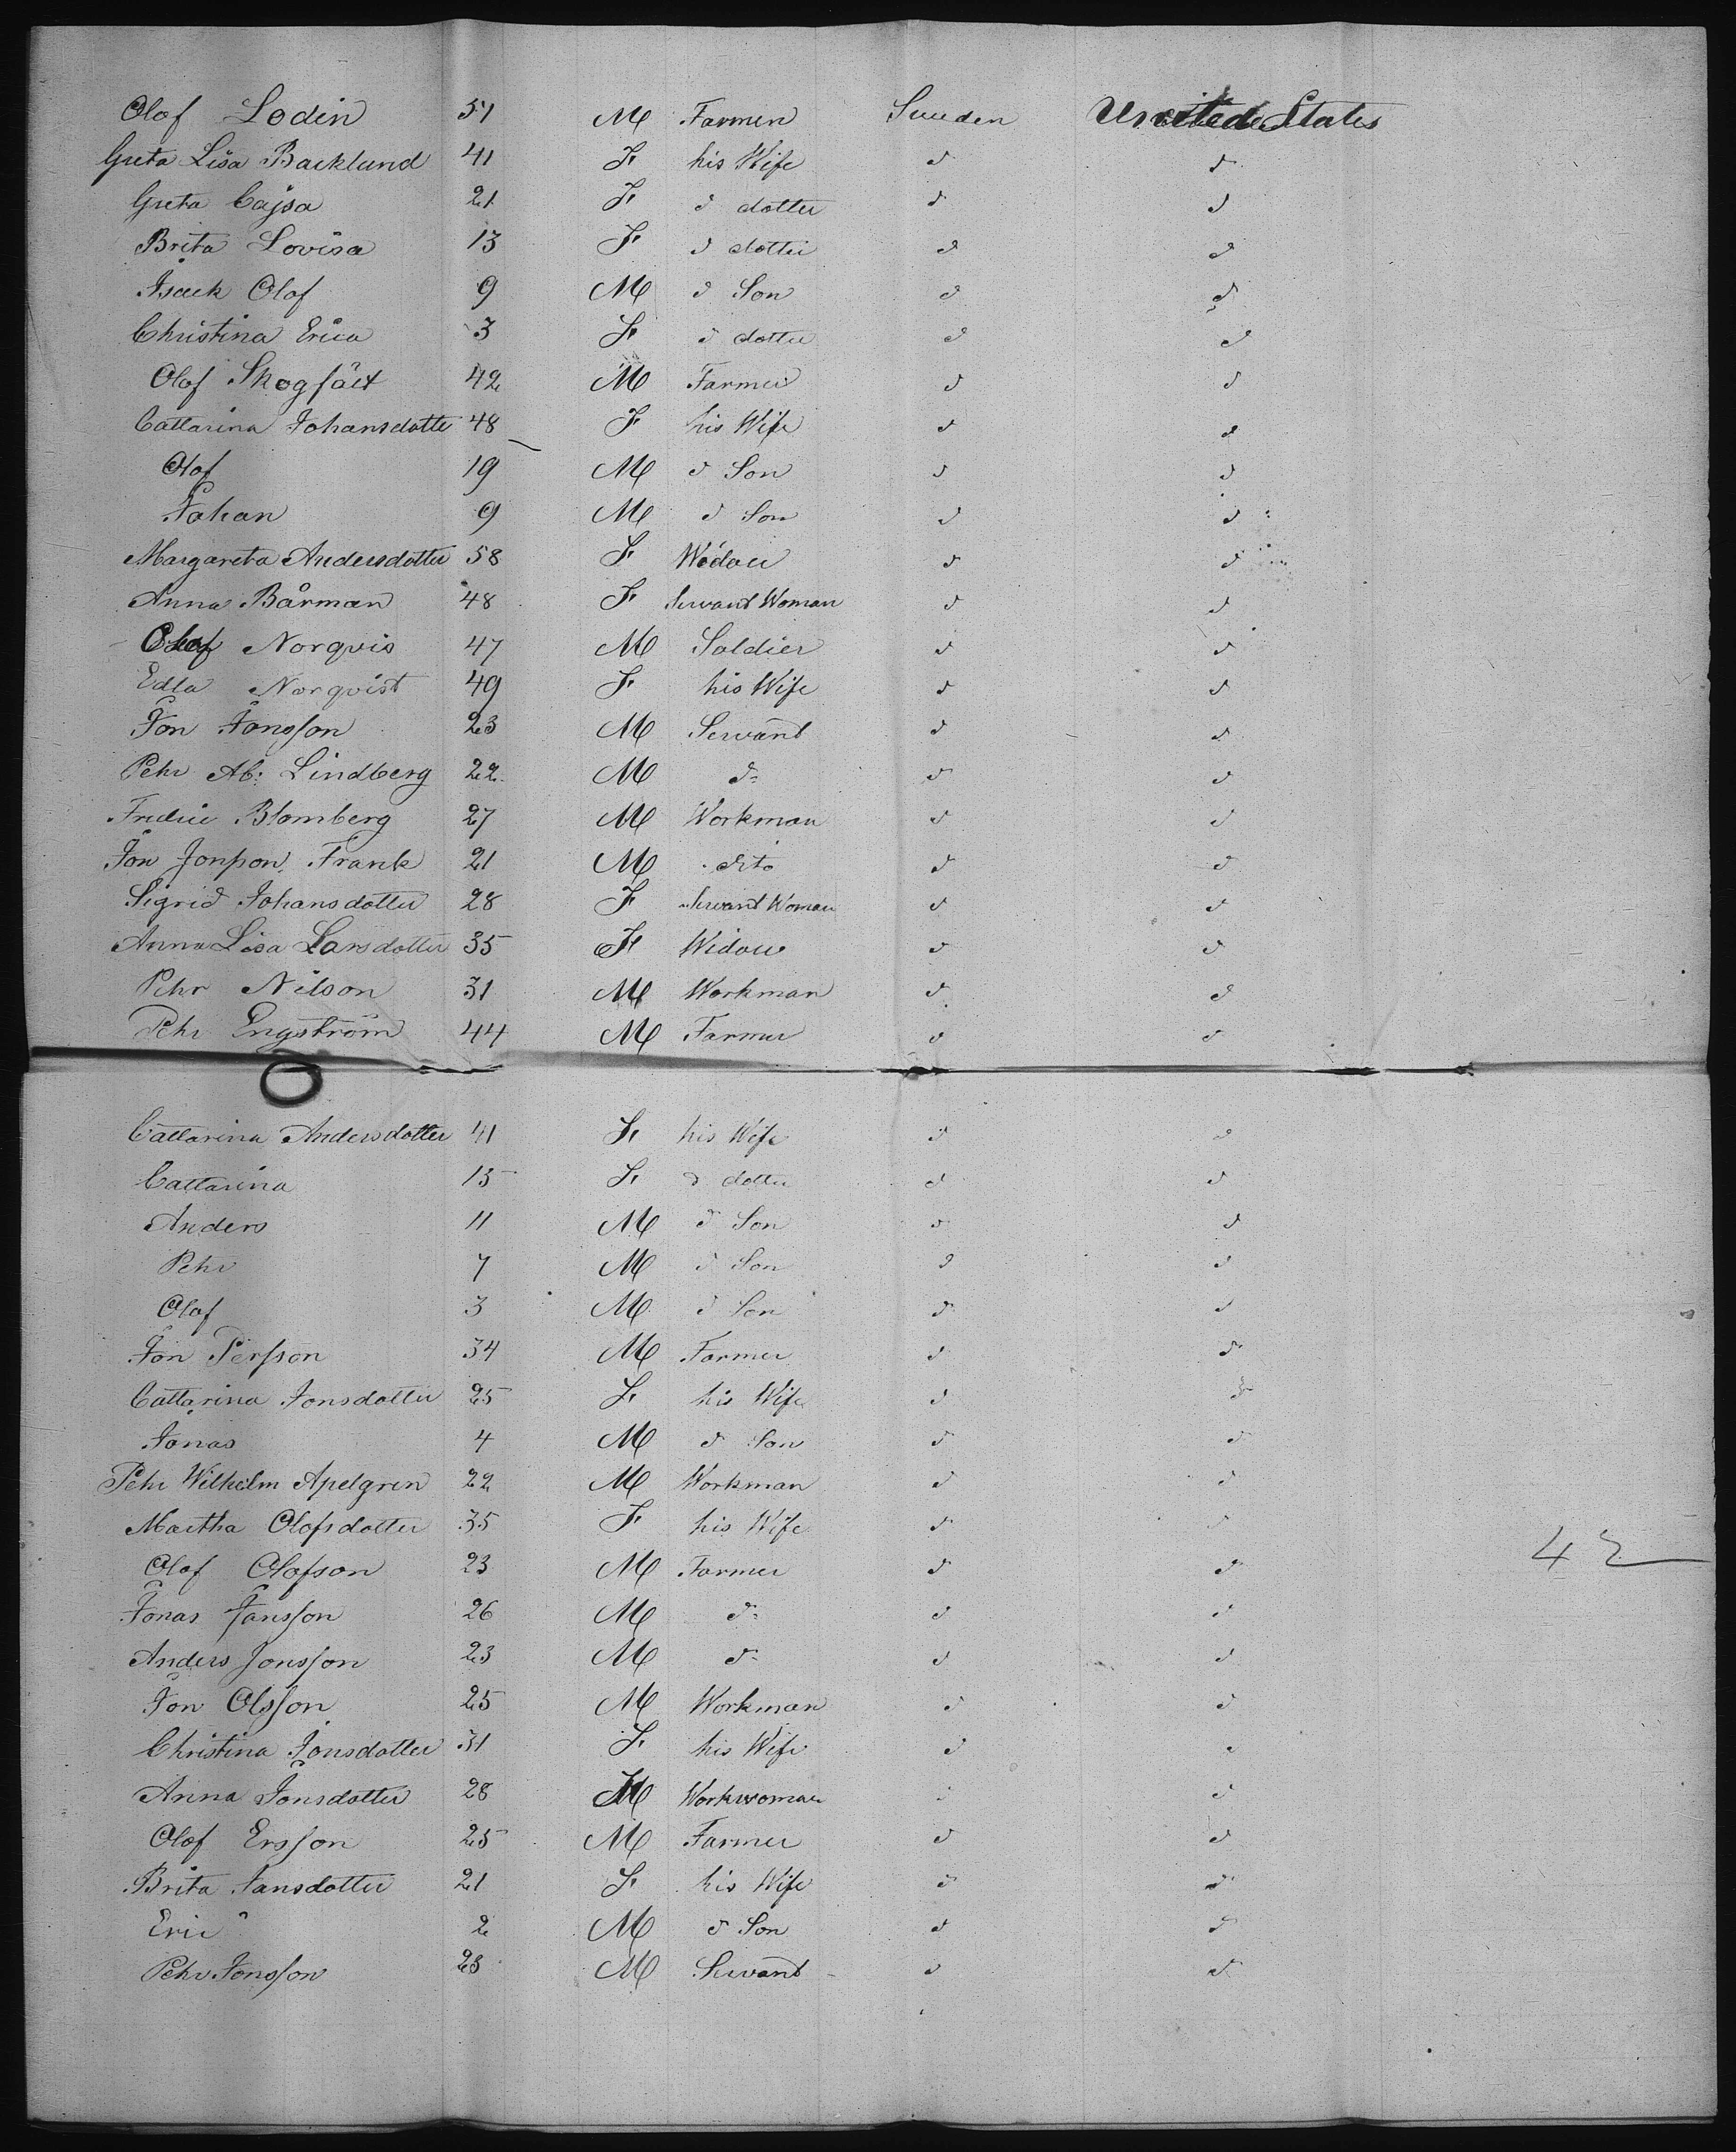 Olof Lodin 51 M Farmer Sweden United States
Greta Lisa Backlund 41 F his Wife d d
Greta Cajsa 21 F d dotter d d
Brita Lovisa 13 F d dotter d d
Isack Olof 9 M d Son d d
Christina Erica 3 F d dotter d d
Olof Skogfält 42 M Farmer d d
Cattarina Johansdotter 48 F his Wife d d
Olof 19 M d Son d d
Johan 9 M d Son d d
Margareta Andersdotter 58 F Widow d d
Anna Bårman 48 F Servant Woman d d
Olof Norqvis 47 M Soldier d d
Edla Norqvist 49 F his Wife d d
Jon Jonsson 23 M Servant d d
Pehr Ab: Lindberg 22 M d: d d
Fredric Blomberg 27 M Workman d d
Jon Jonsson Frank 21 M dito d d
Sigrid Johansdotter 28 F Servant Woman d d
Anna Lisa Larsdotter 35 F Widow d d
Pehr Nilson 31 M Workman d d
Pehr Engström 44 M Farmer d d
Cattarina Andersdotter 41 F his Wife d d
Cattarina 15 F d dotter d d
Anders 11 M d Son d d
Pehr 7 M d Son d d
Olof 3 M d Son d d
Jon Persson 34 M Farmer d d
Cattarina Jonsdotter 25 F his Wife d d
Jonas 4 M d Son d d
Pehr Wilhelm Apelgren 22 M Workman d d
Martha Olofsdotter 35 F his Wife d d
Olof Olofson 23 M Farmer d d 42
Jonas Jansson 26 M d: d d
Anders Jonsson 23 M d: d d
Jon Olsson 25 M Workman d d
Christina Jonsdotter 31 F his Wife d d
Anna Jonsdotter 28 F Workwoman d d
Olof Ersson 25 M Farmer d d
Brita Jansdotter 21 F his Wife d d
Eric 2 M d Son d d
Pehr Jonsson 23 M Servant d d